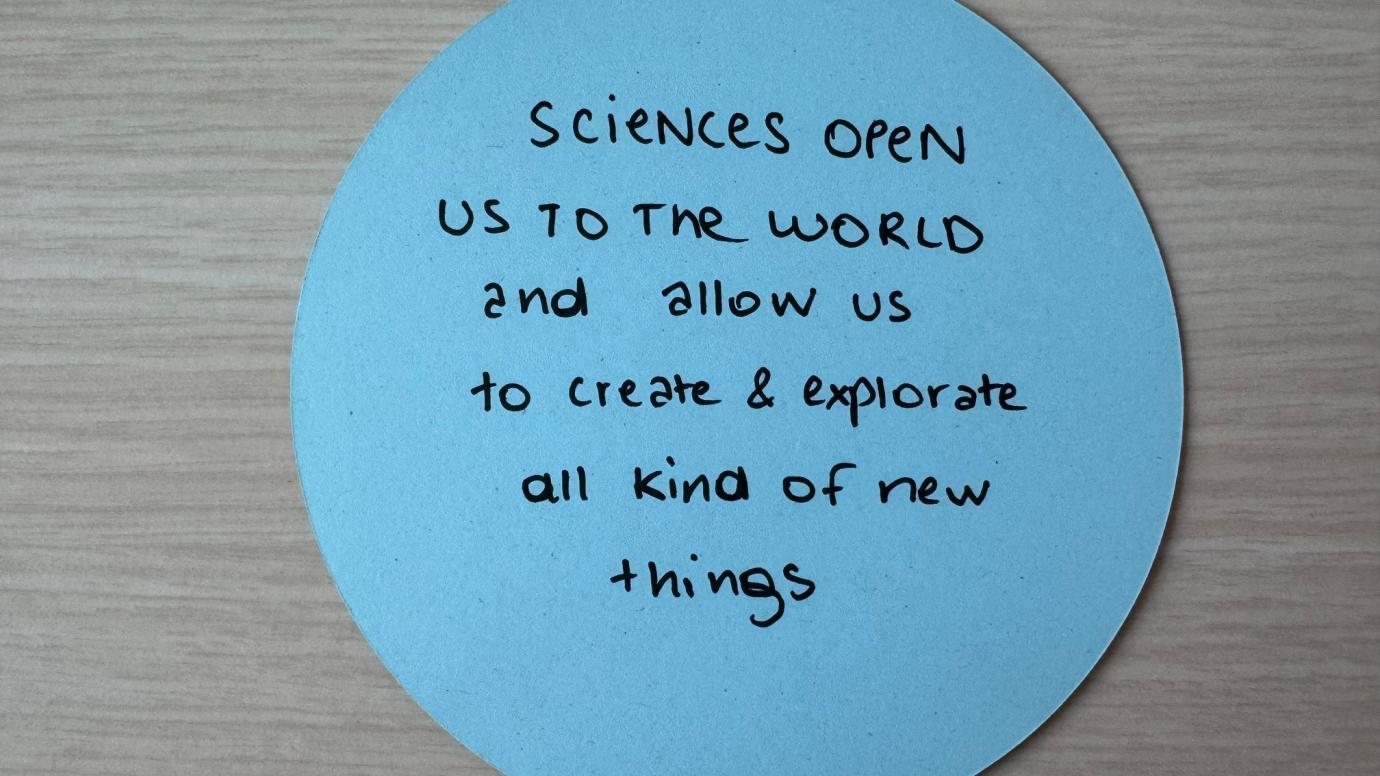 SCIENCES OPEN
US TO The WORLD
and allow us
to create & explorate
all kind of new
things